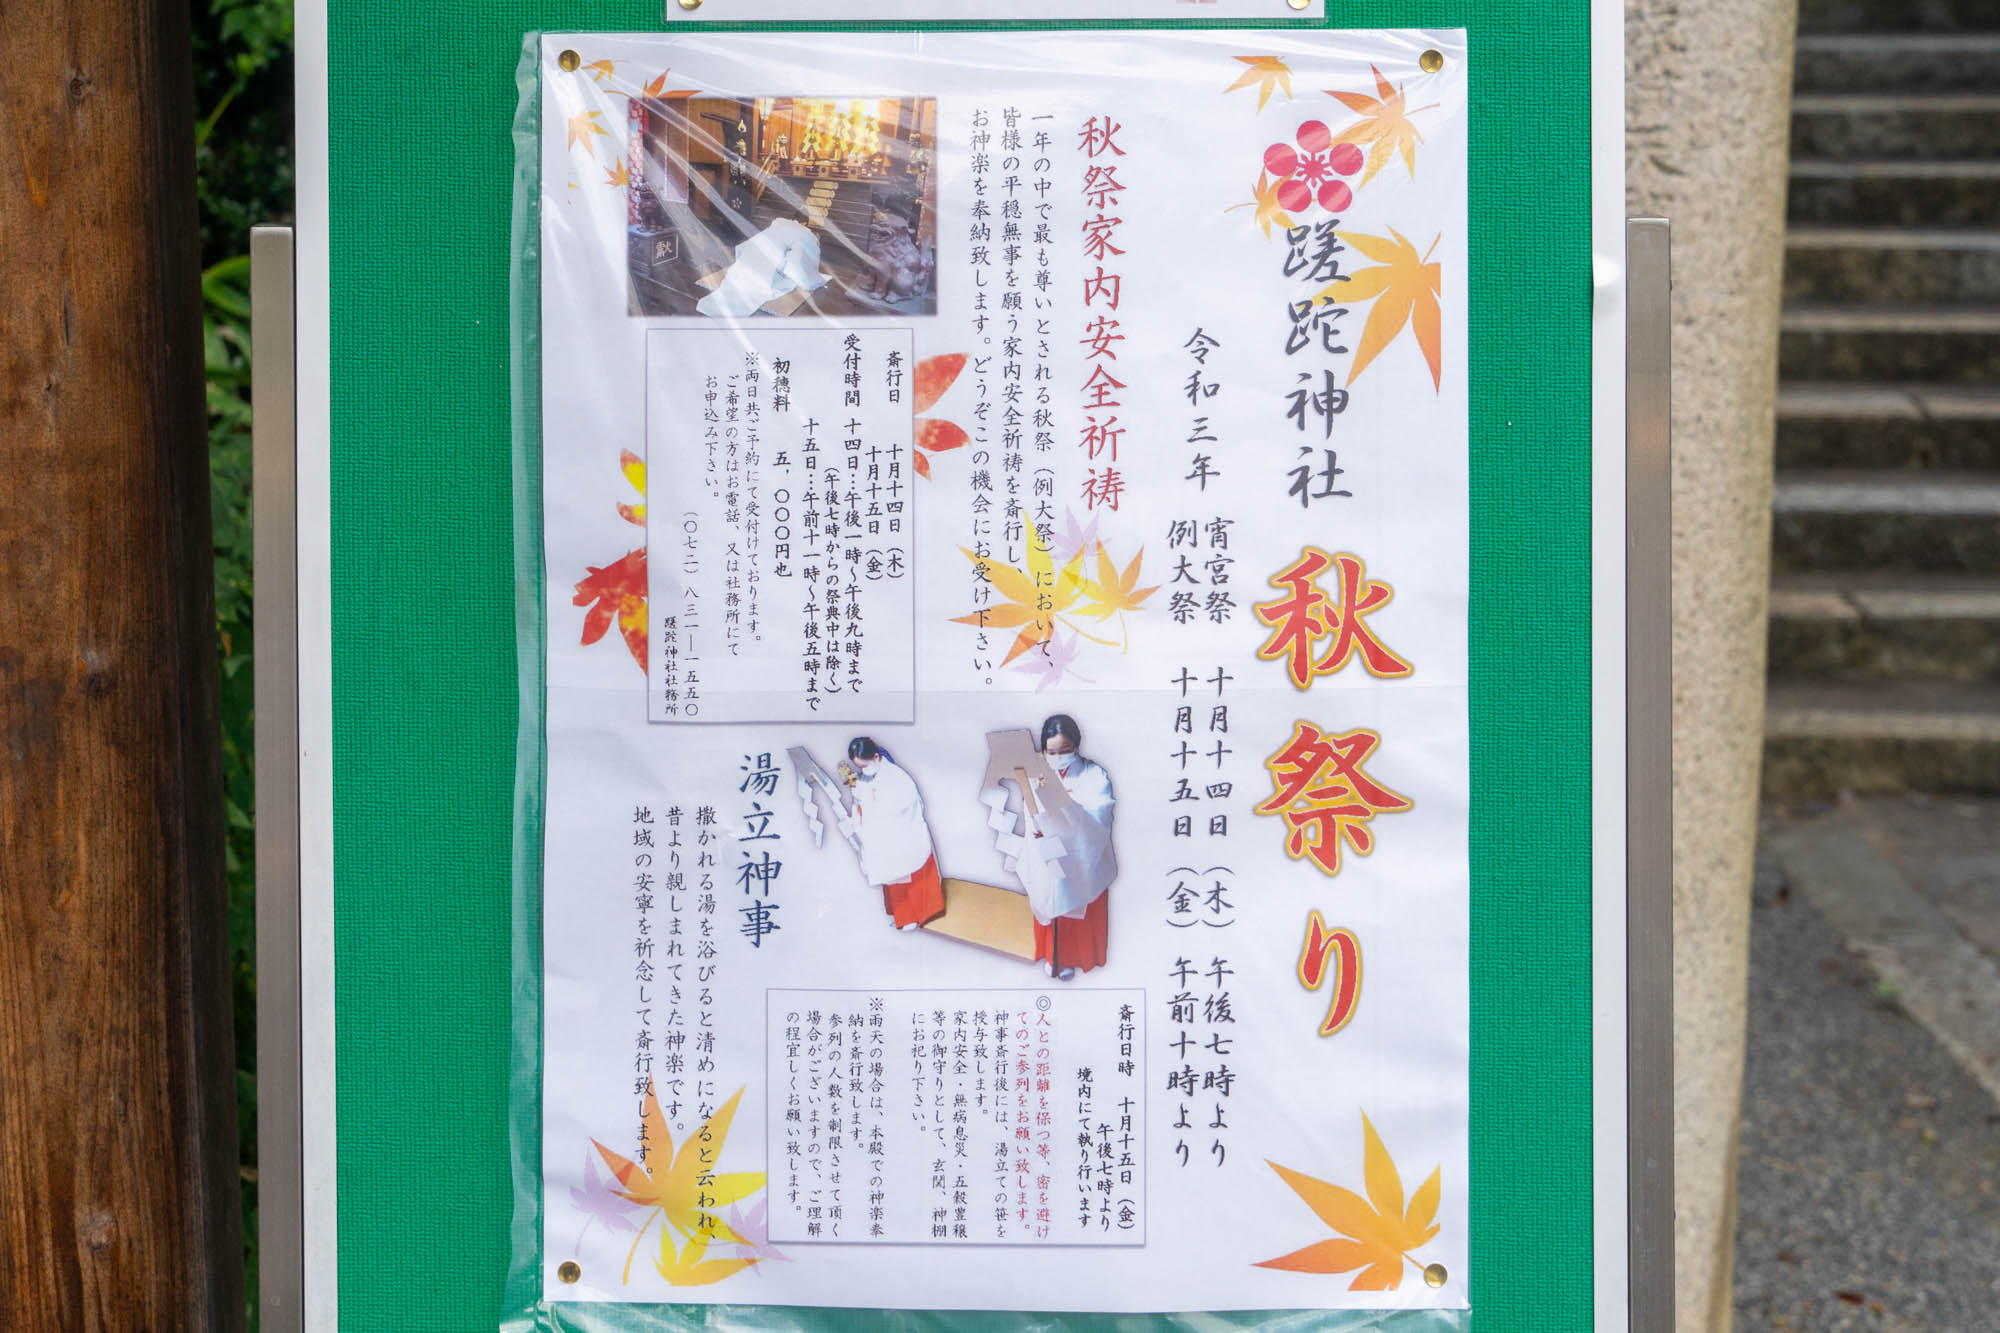 蹉跎神社 秋祭り
令和三年 宵宮祭 十月十四日(木)午後七時より
例大祭 十月十五日(金)午前十時より
秋祭家内安全祈祷
一年の中で最も尊いとされる秋祭(例大祭)において、
皆様の平穏無事を願う家内安全祈祷を斎行し、
お神楽を奉納致します。どうぞこの機会にお受け下さい。
献
斎行日 十月十四日(木)
十月十五日(金)
受付時間 十四日…午後一時〜午後九時まで
(午後七時からの祭典中は除く)
十五日…午前十一時〜午後五時まで
初穂料 五,〇〇〇円也
※両日共ご予約にて受付けております。
ご希望の方はお電話、又は社務所にて
お申込み下さい。
(〇七二)八三一―一五五〇
蹉跎神社社務所
湯立神事
撒かれる湯を浴びると清めになると云われ、
昔より親しまれてきた神楽です。
地域の安寧を祈念して斎行致します。
斎行日時 十月十五日(金)
午後七時より
境内にて執り行います
◎人との距離を保つ等、密を避け
てのご参列をお願い致します。
神事斎行後には、湯立ての笹を
授与致します。
家内安全・無病息災・五穀豊穣
等の御守りとして、玄関、神棚
にお祀り下さい。
※雨天の場合は、本殿での神楽奉
納を斎行致します。
参列の人数を制限させて頂く
場合がございますので、ご理解
の程宜しくお願い致します。